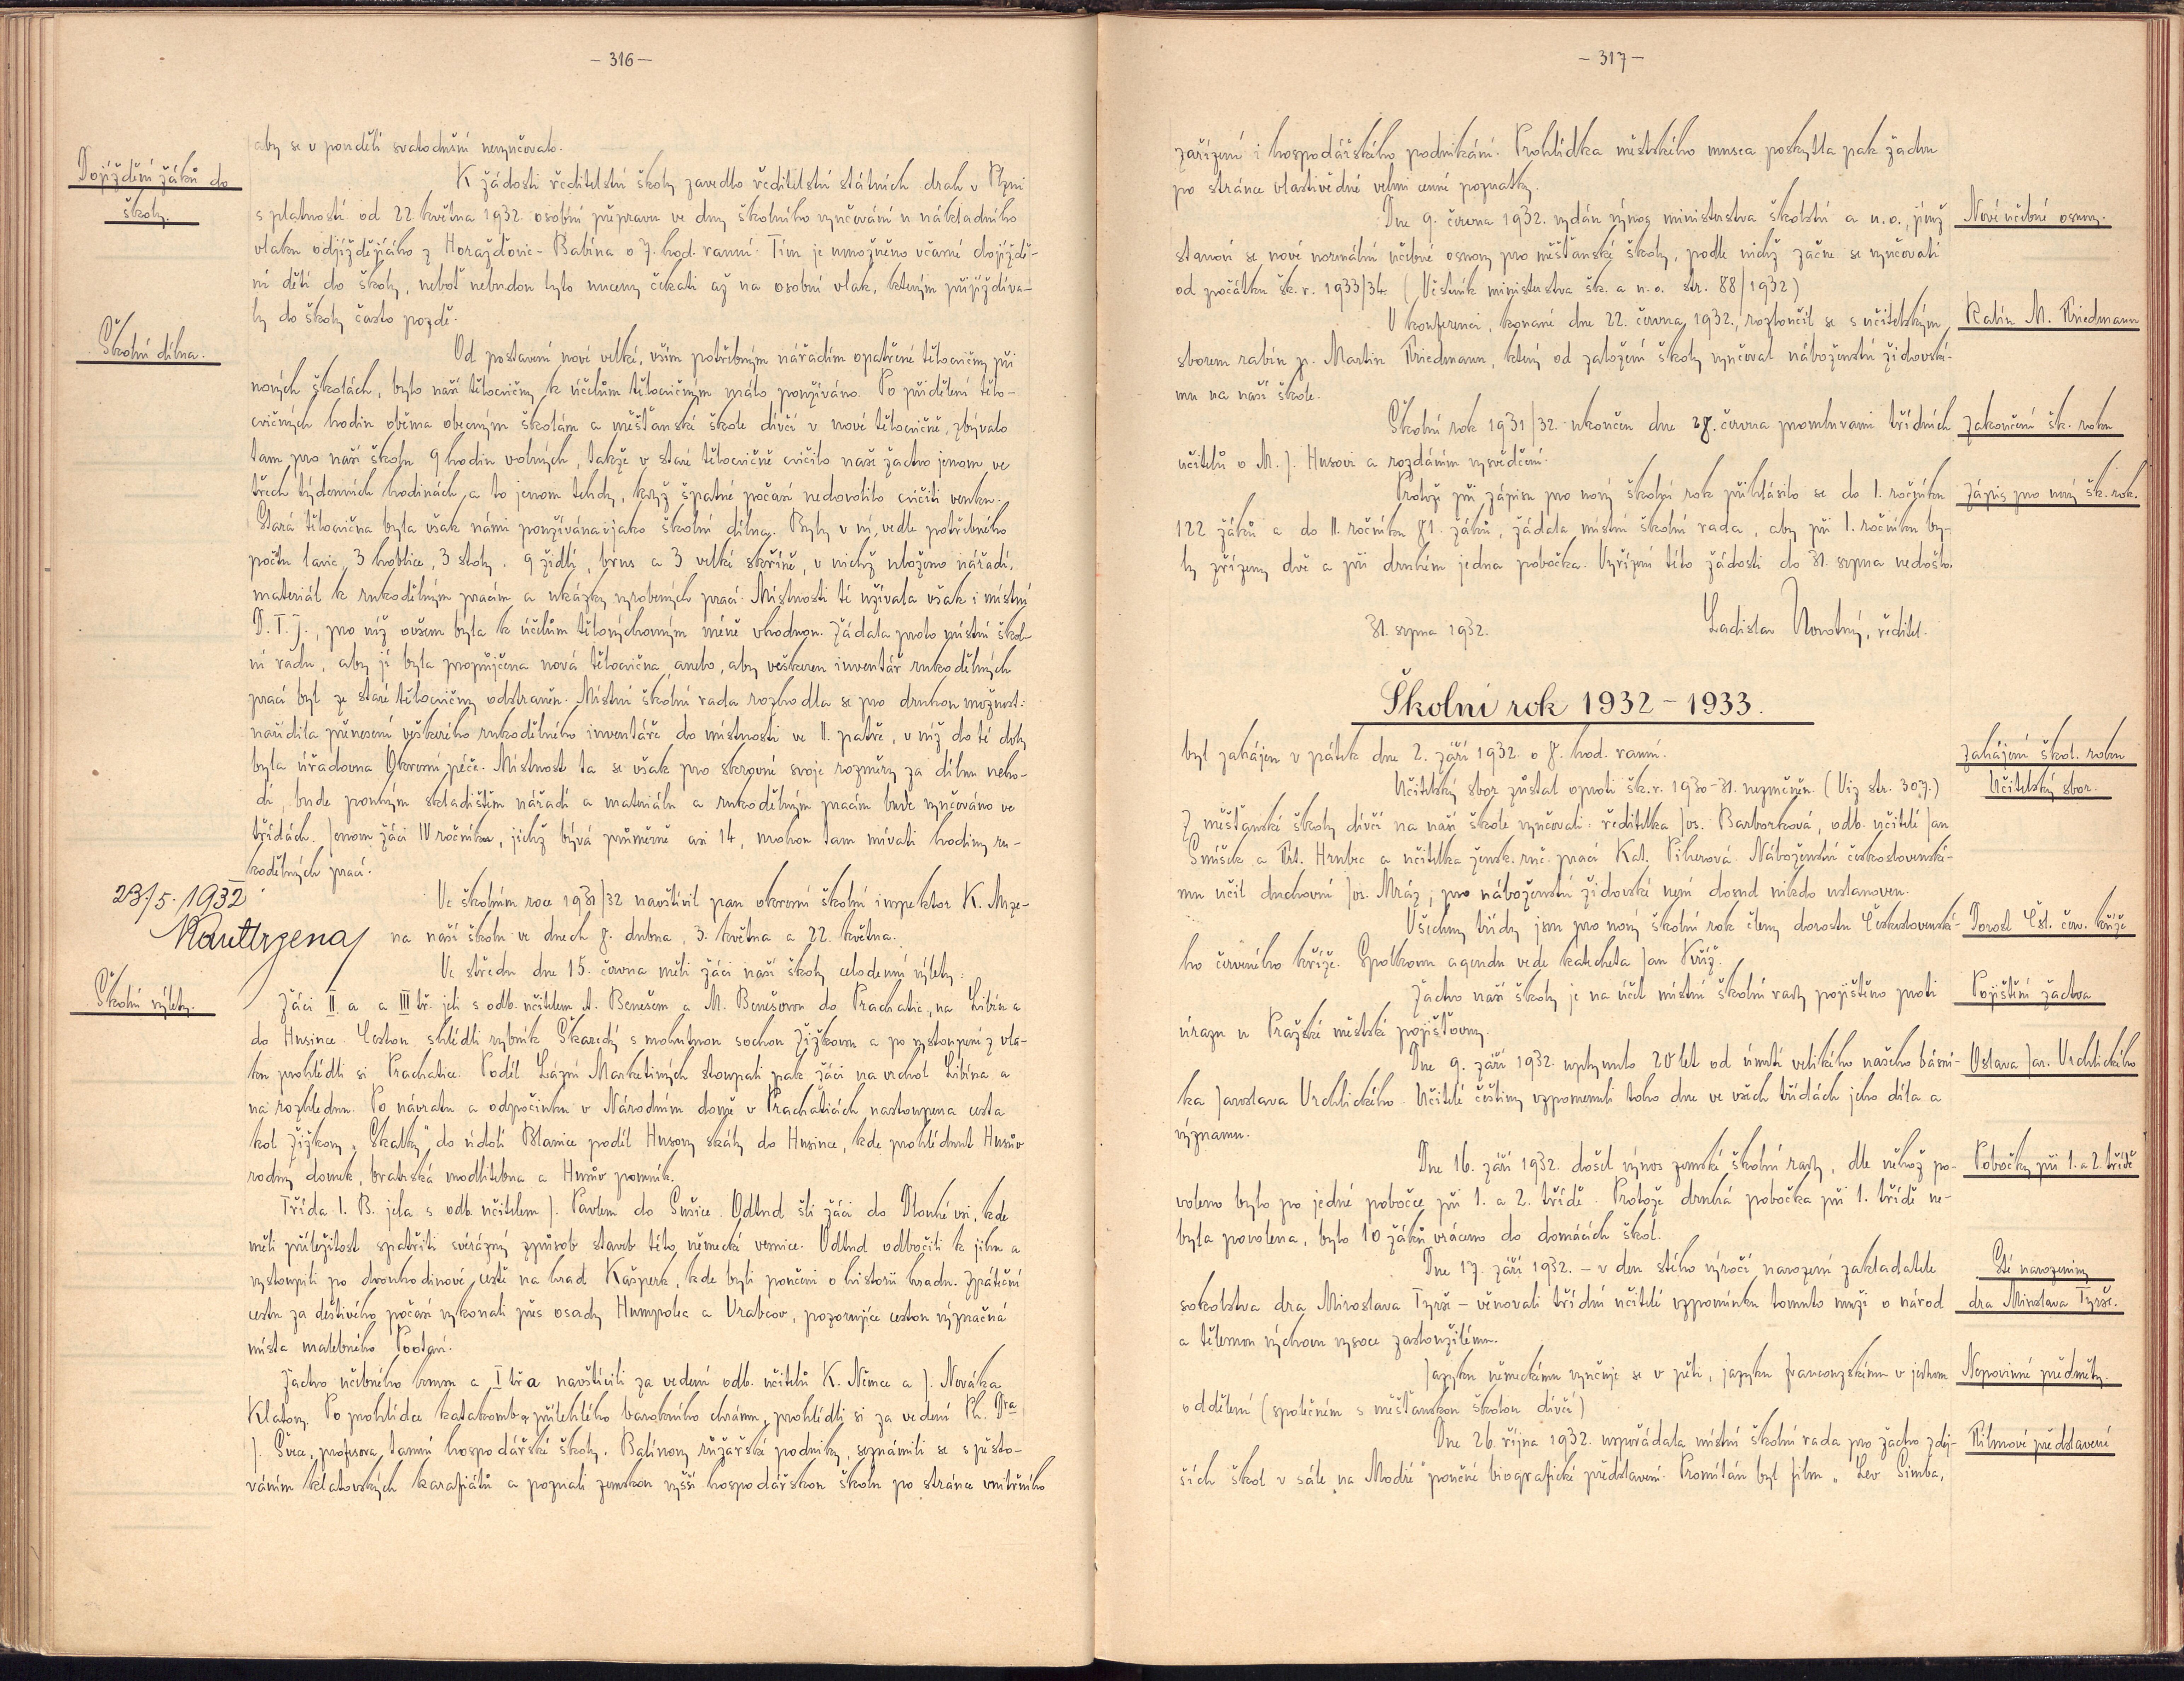 – 316 –
aby se v pondělí svatodušní nevyučovalo.
Dojíždění žáků do
školy.
K žádosti ředitelství školy zavedlo ředitelství státních drah v Plzni
s platností od 22. května 1932. osobní přepravu ve dny školního vyučování u nákladního
vlaku odjíždějícího z Horažďovic-Babína o 7. hod. ranní. Tím je umožněno včasné dojíždě-
ní dětí do školy, neboť nebudou tyto nuceny čekati až na osobní vlak, kterým přijíždíva-
ly do školy často pozdě.
Školní dílna.
Od postavení nové velké, vším potřebným nářadím opatřené tělocvičny při
nových školách, bylo naší tělocvičny k účelům tělocvičným málo používáno. Po přidělení tělo-
cvičných hodin oběma obecným školám a měšťanské škole dívčí v nové tělocvičně, zbývalo
tam pro naši školu 9 hodin volných, takže v staré tělocvičně cvičilo naše žactvo jenom ve
třech týdenních hodinách a to jenom tehdy, když špatné počasí nedovolilo cvičiti venku.
Stará tělocvična byla však námi používána i jako školní dílna. Byly v ní, vedle potřebného
počtu lavic, 3 hoblice, 3 stoly, 9 židlí, brus a 3 velké skříně, v nichž uloženo nářadí,
materiál k rukodělným pracím a ukázky vyrobených prací. Místnosti té užívala však i místní
D. T. J., pro niž ovšem byla k účelům tělovýchovným méně vhodnou. Žádala proto místní škol-
ní radu, aby jí byla propůjčena nová tělocvična, anebo, aby veškeren inventář rukodělných
prací byl ze staré tělocvičny odstraněn. Místní školní rada rozhodla se pro druhou možnost:
nařídila přenesení veškerého rukodělného inventáře do místnosti ve II. patře, v níž do té doby
byla úřadovna Okresní péče. Místnost ta se však pro skrovné svoje rozměry za dílnu neho-
dí, bude pouhým skladištěm nářadí a materiálu a rukodělným pracím bude vyučováno ve
třídách. Jenom žáci IV ročníku, jichž bývá průměrně asi 14, mohou tam mívati hodiny ru-
kodělných prací.
23/5. 1932
Ve školním roce 1931/32 navštívil pan okresní školní inspektor K. Mrze-
na naši školu ve dnech 8. dubna, 3. května a 22. května.
Ve středu dne 15. června měli žáci naší školy celodenní výlety:
Školní výlety.
Žáci II. a a III tř. jeli s odb. učitelem A. Benešem a M. Benešovou do Prachatic, na Libín a
do Husince. Cestou shlédli rybník Škaredý s mohutnou sochou Žižkovou a po vystoupení z vla-
ku prohlédli si Prachatice. Podél Lázní Marketiných stoupali pak žáci na vrchol Libína a
na rozhlednu. Po návratu a odpočinku v Národním domě v Prachaticích nastoupena cesta
kol Žižkovy „Skalky“ do údolí Blanice podél Husovy skály do Husince, kde prohlédnut Husův
rodný domek, bratrská modlitebna a Husův pomník.
Třída I. B. jela s odb. učitelem J. Pavlem do Sušice. Odtud šli žáci do Dlouhé vsi, kde
měli příležitost spatřiti svérázný způsob staveb této německé vesnice. Odtud odbočili k jihu a
vystoupili po dvouhodinové cestě na hrad Kašperk, kde byli poučeni o historii hradu. Zpáteční
cestu za deštivého počasí vykonali přes osady Humpolec a Vrabcov, pozorujíce cestou význačná
místa malebného Pootaví.
Žactvo učebného kursu a I tř a navštívili za vedení odb. učitelů K. Němce a J. Nováka
Klatovy. Po prohlídce katakomb a přilehlého barokního chrámu, prohlédli si za vedení Ph. Dra
J. Švece, profesora tamní hospodářské školy, Balínovy růžařské podniky, seznámili se s pěsto-
váním klatovských karafiátů a poznali zemskou vyšší hospodářskou školu po stránce vnitřního
– 317 –
zařízení i hospodářského podnikání. Prohlídka městského musea poskytla pak žactvu
po stránce vlastivědné velmi cenné poznatky.
Dne 9. června 1932. vydán výnos ministerstva školství a n. o., jímž
Nové učebné osnovy.
stanoví se nové normální učebné osnovy pro měšťanské školy, podle nichž začne se vyučovati
od počátku šk. r. 1933/34. (Věstník ministerstva šk. a n. o. str. 88/1932)
V konferenci, konané dne 22. června 1932., rozloučil se s učitelským
Rabín M. Friedmann
sborem rabín p. Martin Friedmann, který od založení školy vyučoval náboženství židovské-
mu na naší škole.
Školní rok 1931/32. ukončen dne 28. června promluvami třídních
Zakončení šk. roku
učitelů o M. J. Husovi a rozdáním vysvědčení.
Protože při zápisu pro nový školní rok přihlásilo se do I. ročníku
Zápis pro nový šk. rok.
122 žáků a do II. ročníku 81. žáků, žádala místní školní rada, aby při I. ročníku by-
ly zřízeny dvě a při druhém jedna pobočka. Vyřízení této žádosti do 31. srpna nedošlo.
31. srpna 1932.
Ladislav Novotný, ředitel.
Školní rok 1932 – 1933.
byl zahájen v pátek dne 2. září 1932. o 8. hod. ranní.
Zahájení škol. roku
Učitelský sbor zůstal oproti šk. r. 1930–31. nezměněn. (Viz str. 307.)
Učitelský sbor.
Z měšťanské školy dívčí na naší škole vyučovali: ředitelka Jos. Barborková, odb. učitelé Jan
Smíšek a Frt. Hrubec a učitelka žensk. ruč. prací Kat. Piherová. Náboženství československé-
mu učil duchovní Jos. Mráz, pro náboženství židovské není dosud nikdo ustanoven.
Všechny třídy jsou pro nový školní rok členy dorostu Československé-
Dorost Čsl. červ. kříže
ho červeného kříže. Spolkovou agendu vede katecheta Jan Kříž.
Žactvo naší školy je na účet místní školní rady pojištěno proti
Pojištění žactva
úrazu u Pražské městské pojišťovny.
Dne 9. září 1932. uplynulo 20 let od úmrtí velikého našeho básní-
Oslava Jar. Vrchlického
ka Jaroslava Vrchlického. Učitelé češtiny vzpomenuli toho dne ve všech třídách jeho díla a
významu.
Dne 16. září 1932. došel výnos zemské školní rady, dle něhož po-
Pobočky při 1. a 2. třídě
voleno bylo po jedné pobočce při 1. a 2. třídě. Protože druhá pobočka při 1. třídě ne-
byla povolena, bylo 10 žáků vráceno do domácích škol.
Dne 17. září 1932. – v den stého výročí narození zakladatele
Sté narozeniny
sokolstva dra Miroslava Tyrše – věnovali třídní učitelé vzpomínku tomuto muži o národ
dra Miroslava Tyrše.
a tělesnou výchovu vysoce zasloužilému.
Jazyku německému vyučuje se v pěti, jazyku francouzskému v jednom
Nepovinné předměty.
oddělení (společném s měšťanskou školou dívčí)
Dne 26. října 1932. uspořádala místní školní rada pro žactvo zdej-
Filmové představení
ších škol v sále „na Modré“ poučné biografické představení. Promítán byl film „Lev Simba,